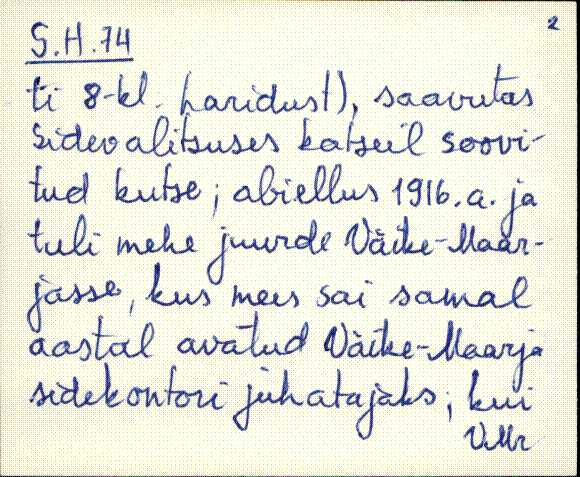 2
S.H.74
ti 8-kl. haridust), saavutas
Sidevalitsuses katseil soovi-
tud kutse; abiellus 1916.a. ja
tuli mehe juurde Väike-Maar-
jasse, kus mees sai samal
aastal avatud Väike-Maarja
sidekontori juhatajaks; kui
V.Mr